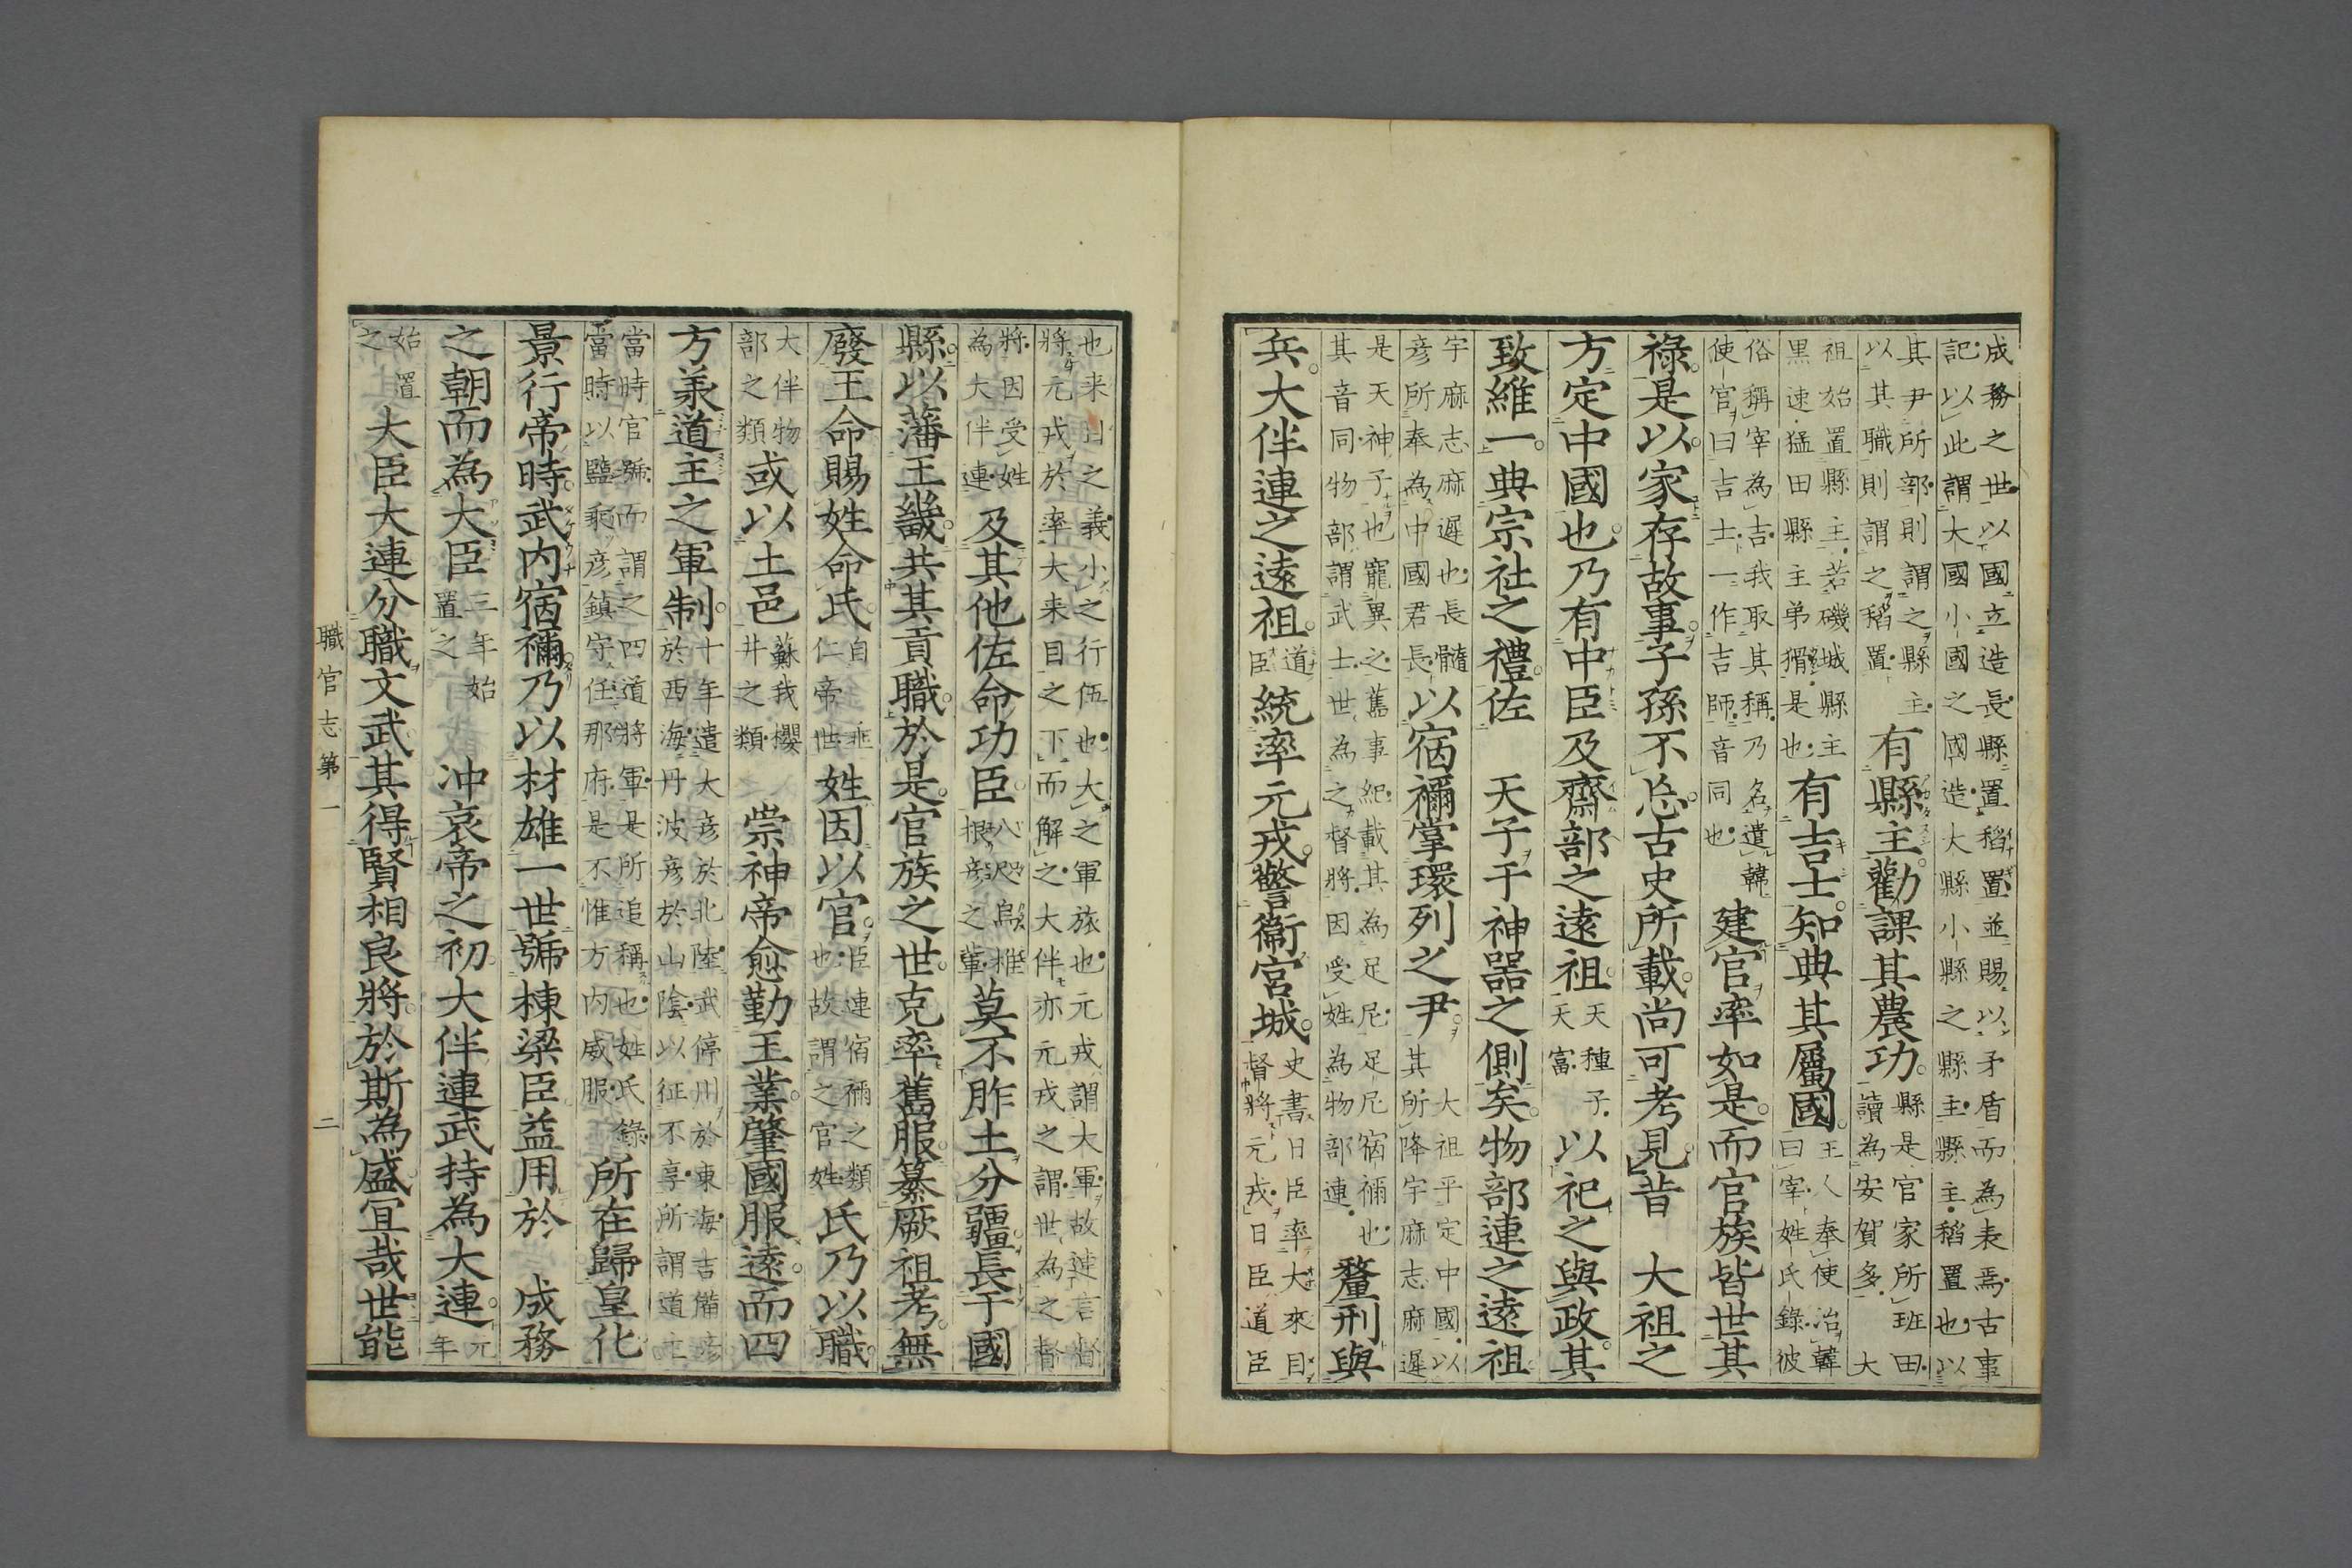 成務之世以國立造長縣置稻置並賜以矛盾而為表焉古事
記以此謂大國小國之國造大縣小縣之縣主縣主稻置也以
其尹所部則謂之縣主
以其職則謂之稻置
有縣主勸課其農功
縣是官家所班田
讀為安賀多大
祖始置縣主若磯城縣主
黑速猛田縣主弟猾是也
有吉士知典其屬國
王人奉使治韓
曰宰姓氏錄彼
俗稱宰為吉我取其稱乃名遣韓
使官曰吉士一作吉師音同也
建官率如是而官族皆世其
祿是以家存故事子孫不忘古史所載尚可考見昔　大祖之
方定中國也乃有中臣及齋部之遠祖
天種子
天富
以祀之與政其
致維一典宗社之禮佐　天子于神器之側矣物部連之遠祖
宇麻志麻遲也長髓
彦所奉為中國君長
以宿禰掌環列之尹
大祖平定中國以
其所降宇麻志麻遲
是天神子也寵異之舊事紀載其為足尼足尼宿禰也
其音同物部謂武士世為之督將因受姓為物部連
釐刑與
兵大伴連之遠祖
道
臣
統率元戎警衞宮城
史書日臣率大來目
督將元戎日臣道臣
也来目之義小之行伍也大之軍旅也元戎謂大軍故連言督
將元戎於率大来目之下而解之大伴亦元戎之謂世為之督
將因受姓
為大伴連
及其他佐命功臣
八咫烏椎
根彦之輩
莫不胙土分疆長于國
縣以藩王畿共其貢職於是官族之世克率舊服纂厥祖考無
廢王命賜姓命氏
自乖
仁帝世
姓因以官
臣連宿禰之類
也故謂之官姓
氏乃以職
大伴物
部之類
或以土邑
蘇我櫻
井之類
崇神帝愈勤王業肇國服遠而四
方義道主之軍制
十年遣大彦於北陸武停川於東海吉備彦
於西海丹波彦於山陰以征不享所謂道主
當時官號而謂之四道將軍是所追稱也姓氏錄
當時以鹽乘彦鎮守任那府是不惟方内威服
所在歸皇化
景行帝時武内宿禰乃以材雄一世號棟梁臣益用於　成務
之朝而為大臣
三年始
置之
冲哀帝之初大伴連武持為大連
元
年
始置
之
大臣大連分職文武其得賢相良將於斯為盛宜哉世能
職官志第一　二